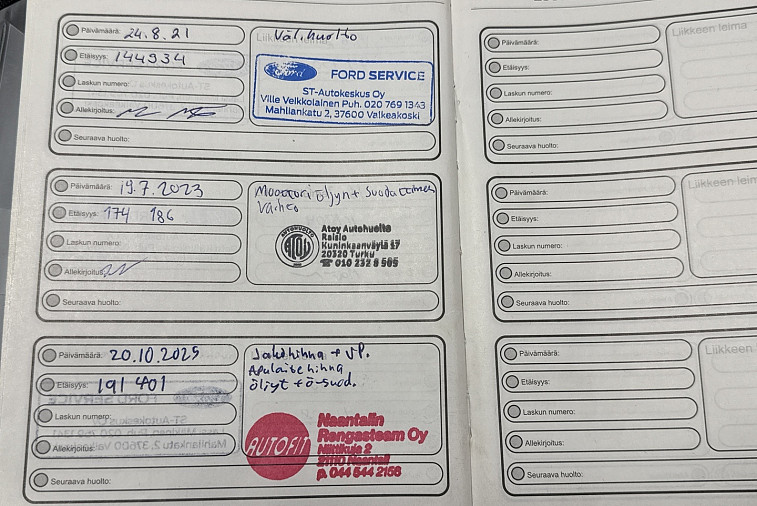 Päivämäärä: 24.8.21
Etäisyys: 144934
Laskun numero:
Allekirjoitus:
Seuraava huolto:
Välihuolto
Ford
FORD SERVICE
ST-Autokeskus Oy
Ville Veikkolainen Puh. 020 769 1343
Mahliankatu 2, 37600 Valkeakoski
Päivämäärä: 19.7.2023
Etäisyys: 174 186
Laskun numero:
Allekirjoitus:
Seuraava huolto:
Moottoriöljyn + suodattimen
vaihto
AUTOHUOLTO
ATOY
Atoy Autohuolto
Raisio
Kuninkaanväylä 17
20320 Turku
☎ 010 232 8 505
Päivämäärä: 20.10.2025
Etäisyys: 191 401
Laskun numero:
Allekirjoitus:
Seuraava huolto:
Jakohihna + VP.
Apulaitehihna
öljyt + ö-suod.
AUTOFIT
Naantalin
Rengasteam Oy
Niittikuja 2
21100 Naantali
p. 044 544 2158
Päivämäärä:
Etäisyys:
Laskun numero:
Allekirjoitus:
Seuraava huolto:
Liikkeen leima
Päivämäärä:
Etäisyys:
Laskun numero:
Allekirjoitus:
Seuraava huolto:
Liikkeen leim
Päivämäärä:
Etäisyys:
Laskun numero:
Allekirjoitus:
Seuraava huolto:
Liikkeen